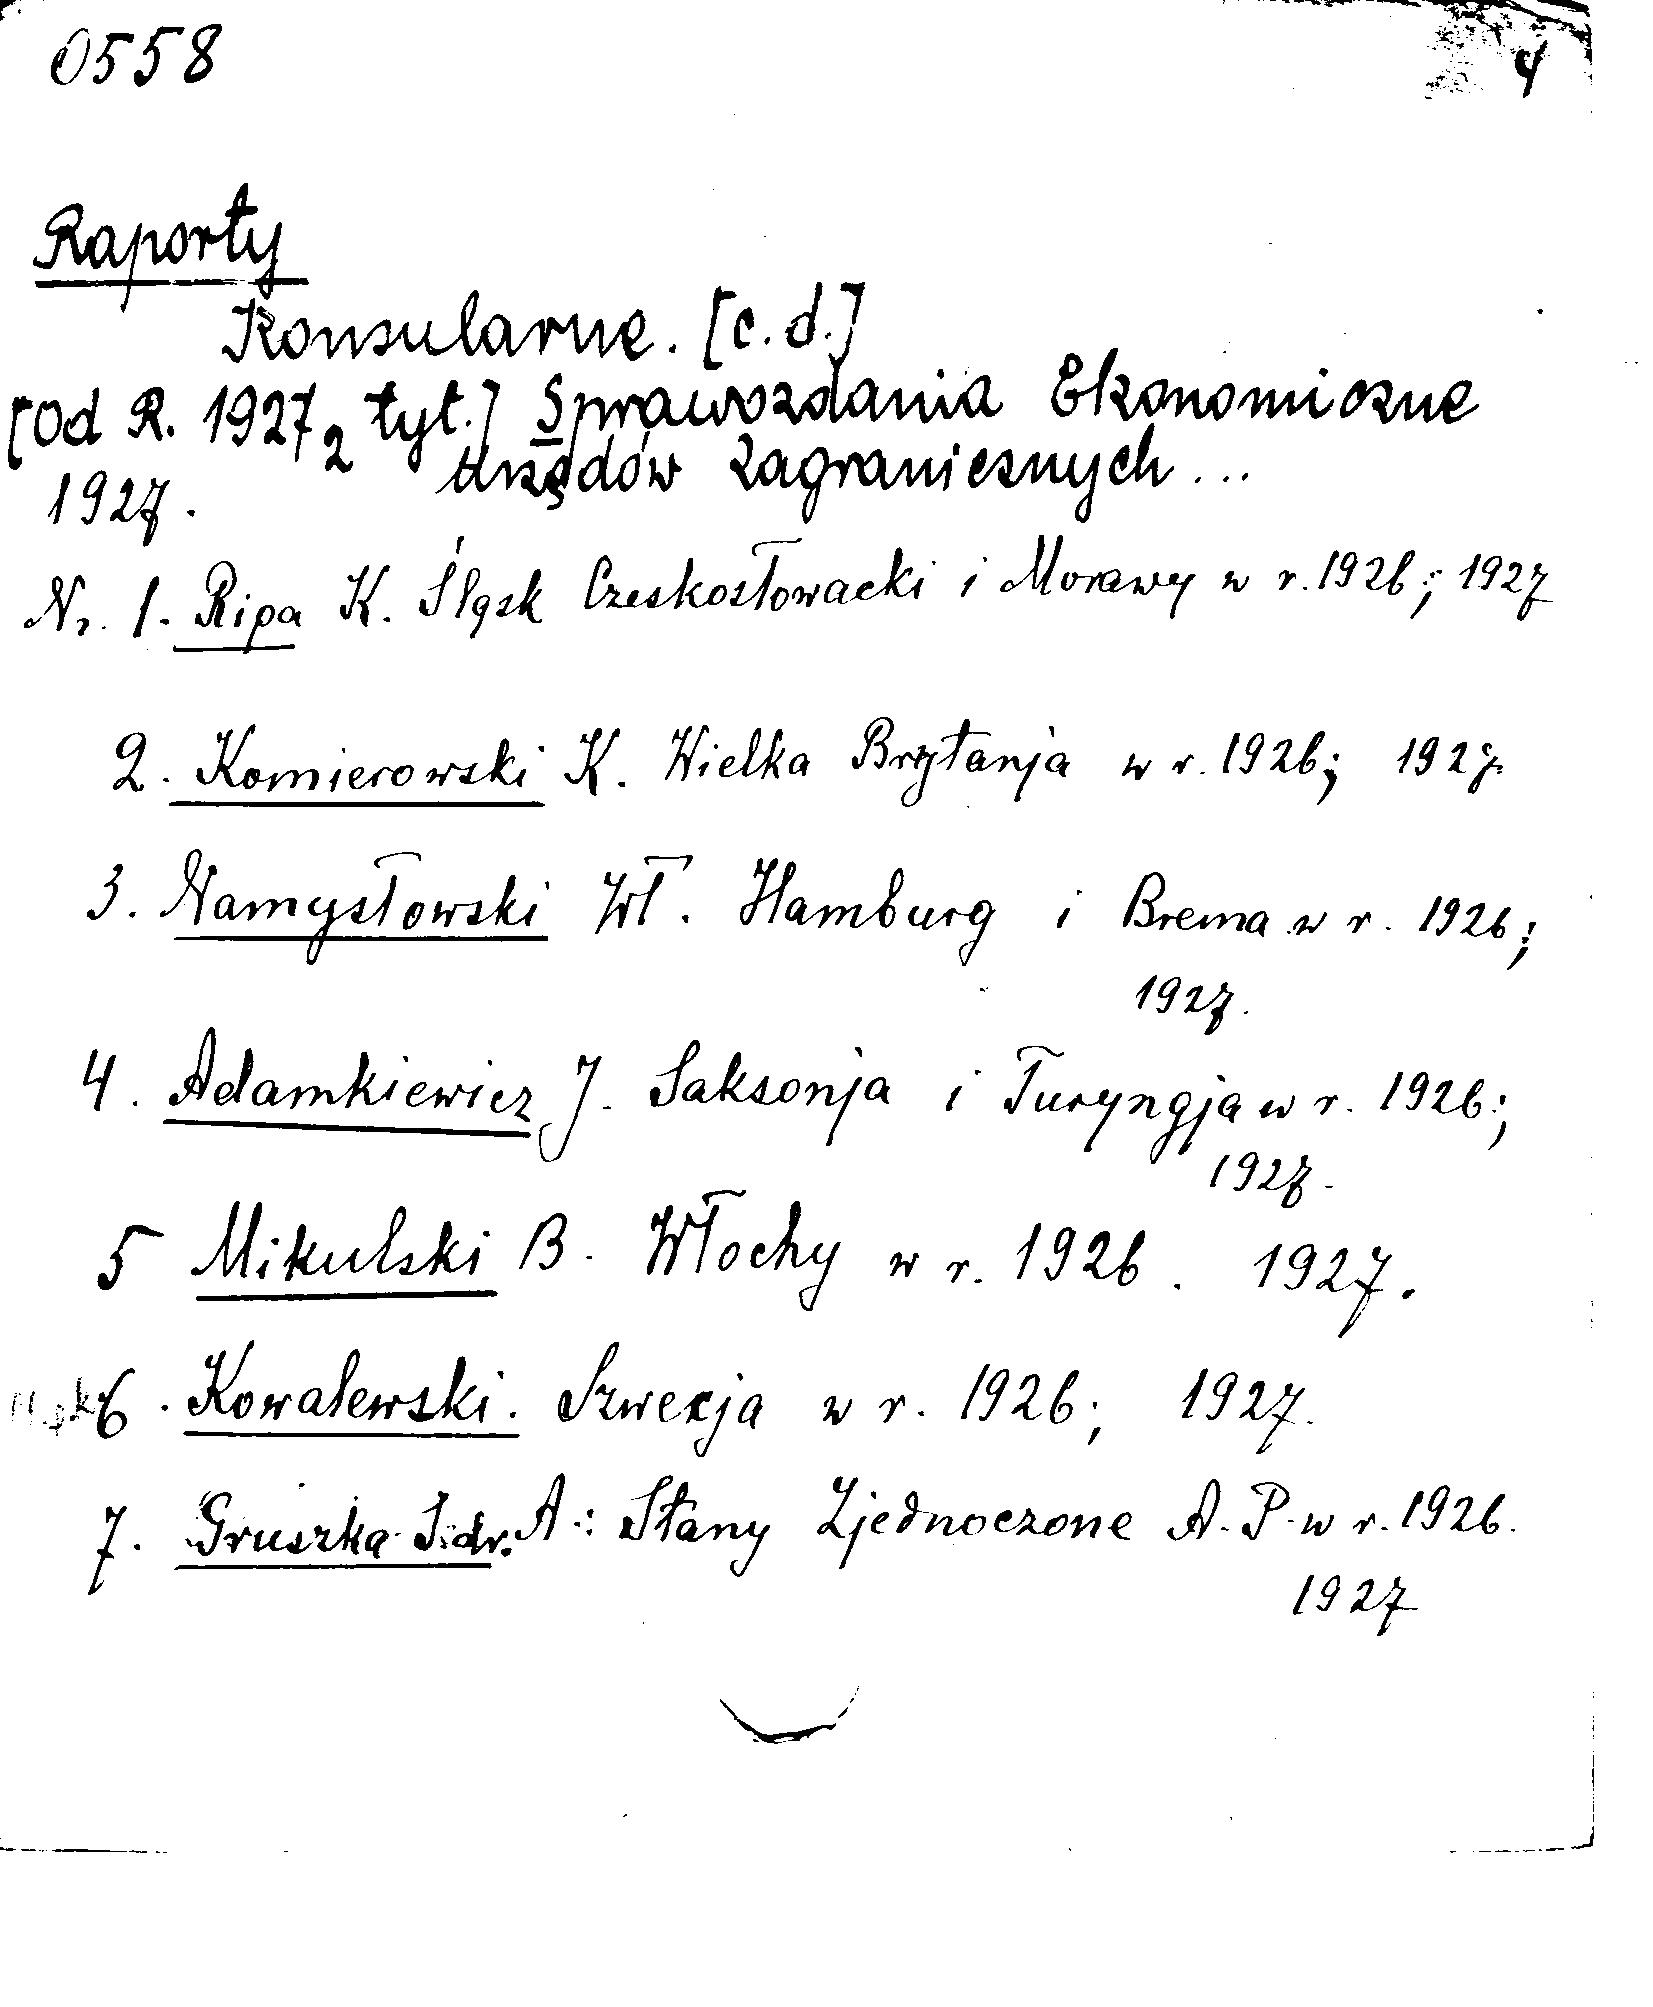 0558 4
Raporty
Konsularne. [c.d.]
[Od R. 1927 2 tyt.] Sprawozdania Ekonomiczne
1927. Urzędów Zagranicznych...
Nr. 1. Ripa K. Śląsk Czeskosłowacki i Morawy w r. 1926; 1927
2. Komierowski K. Wielka Brytanja w r. 1926; 1927.
3. Namysłowski Wł. Hamburg i Brema w r. 1926;
1927.
4. Adamkiewicz J. Saksonja i Turyngja w r. 1926;
1927.
5 Mikulski B. Włochy w r. 1926. 1927.
6. Kowalewski. Szwecja w r. 1926; 1927.
7. Gruszka I. dr. A: Stany Zjednoczone A. P. w r. 1926.
1927